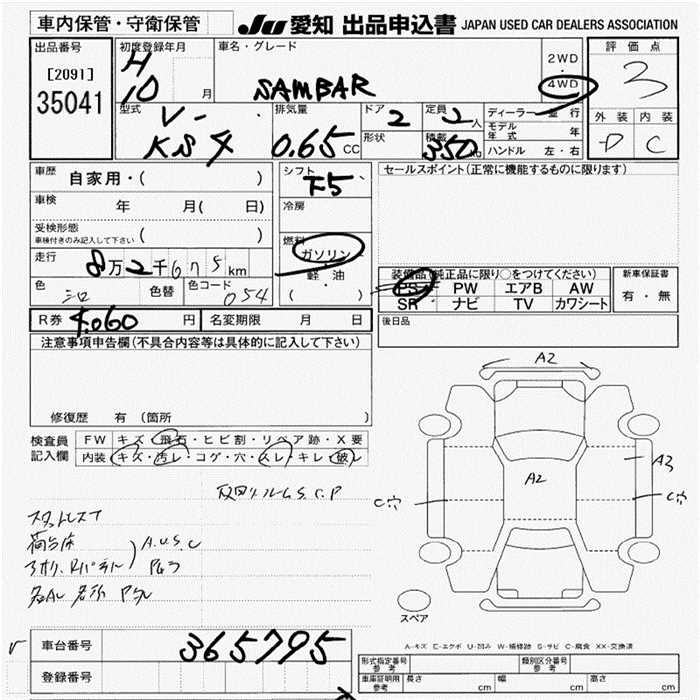 車内保管・守衛保管 JU 愛知 出品申込書 JAPAN USED CAR DEALERS ASSOCIATION
出品番号 [2091] 35041
初度登録年月 H 10 月
車名・グレード SAMBAR
2WD ・ 4WD
評価点 3
外装 内装
D C
型式 V- KS4
排気量 0.65 CC
ドア 2 定員 2 人
形状 積載 350 kg
ディーラー・並行
モデル年式 年
ハンドル 左・右
車歴 自家用・( )
車検 年 月( 日)
受検形態 車検付きのみ記入して下さい ( )
走行 8万2千675km
色 シロ 色替 色コード 054
シフト F5
冷房
燃料 ガソリン ・ 軽油 ( )
セールスポイント(正常に機能するものに限ります)
装備品(純正品に限り○をつけてください)
PS PW エアB AW
SR ナビ TV カワシート
新車保証書 有・無
後日品
R券 4,060 円 名変期限 月 日
注意事項申告欄(不具合内容等は具体的に記入して下さい)
修復歴 有(箇所
検査員記入欄 FW キズ・飛石・ヒビ割・リペア跡・X要
内装 キズ・汚レ・コゲ・穴・スレ・キレ・破レ
A2
A2
A3
C穴
C穴
スペア
荷台床
A.U.S.C
A-キズ E-エクボ U-凹み W-補修跡 S-サビ C-腐食 XX-交換済
車台番号 365795
登録番号
形式指定番号 参考 類別区分番号 参考
車庫証明用 参考 長さ cm 幅 cm 高さ cm